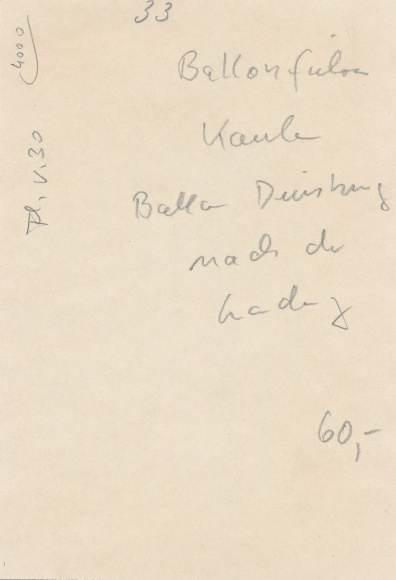 33
4000
Ph. V. 30
Ballonführer
Kaule
Ballon Duisburg
nach der
60,-